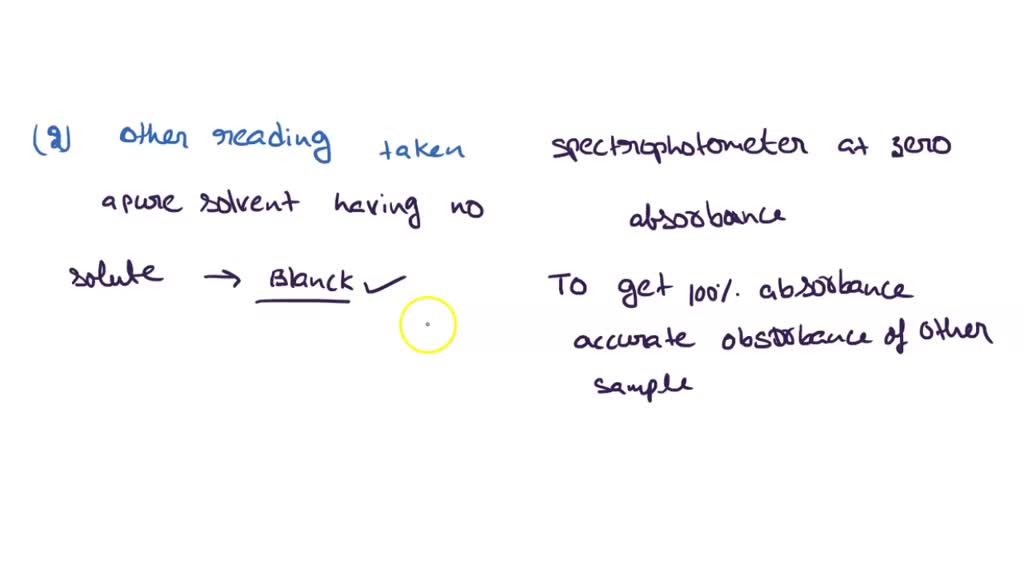 (2) other reading taken
a pure solvent having no
solute → Blanck ✓
spectrophotometer at zero
absorbance
To get 100%. absorbance
accurate obsorbance of other
sample